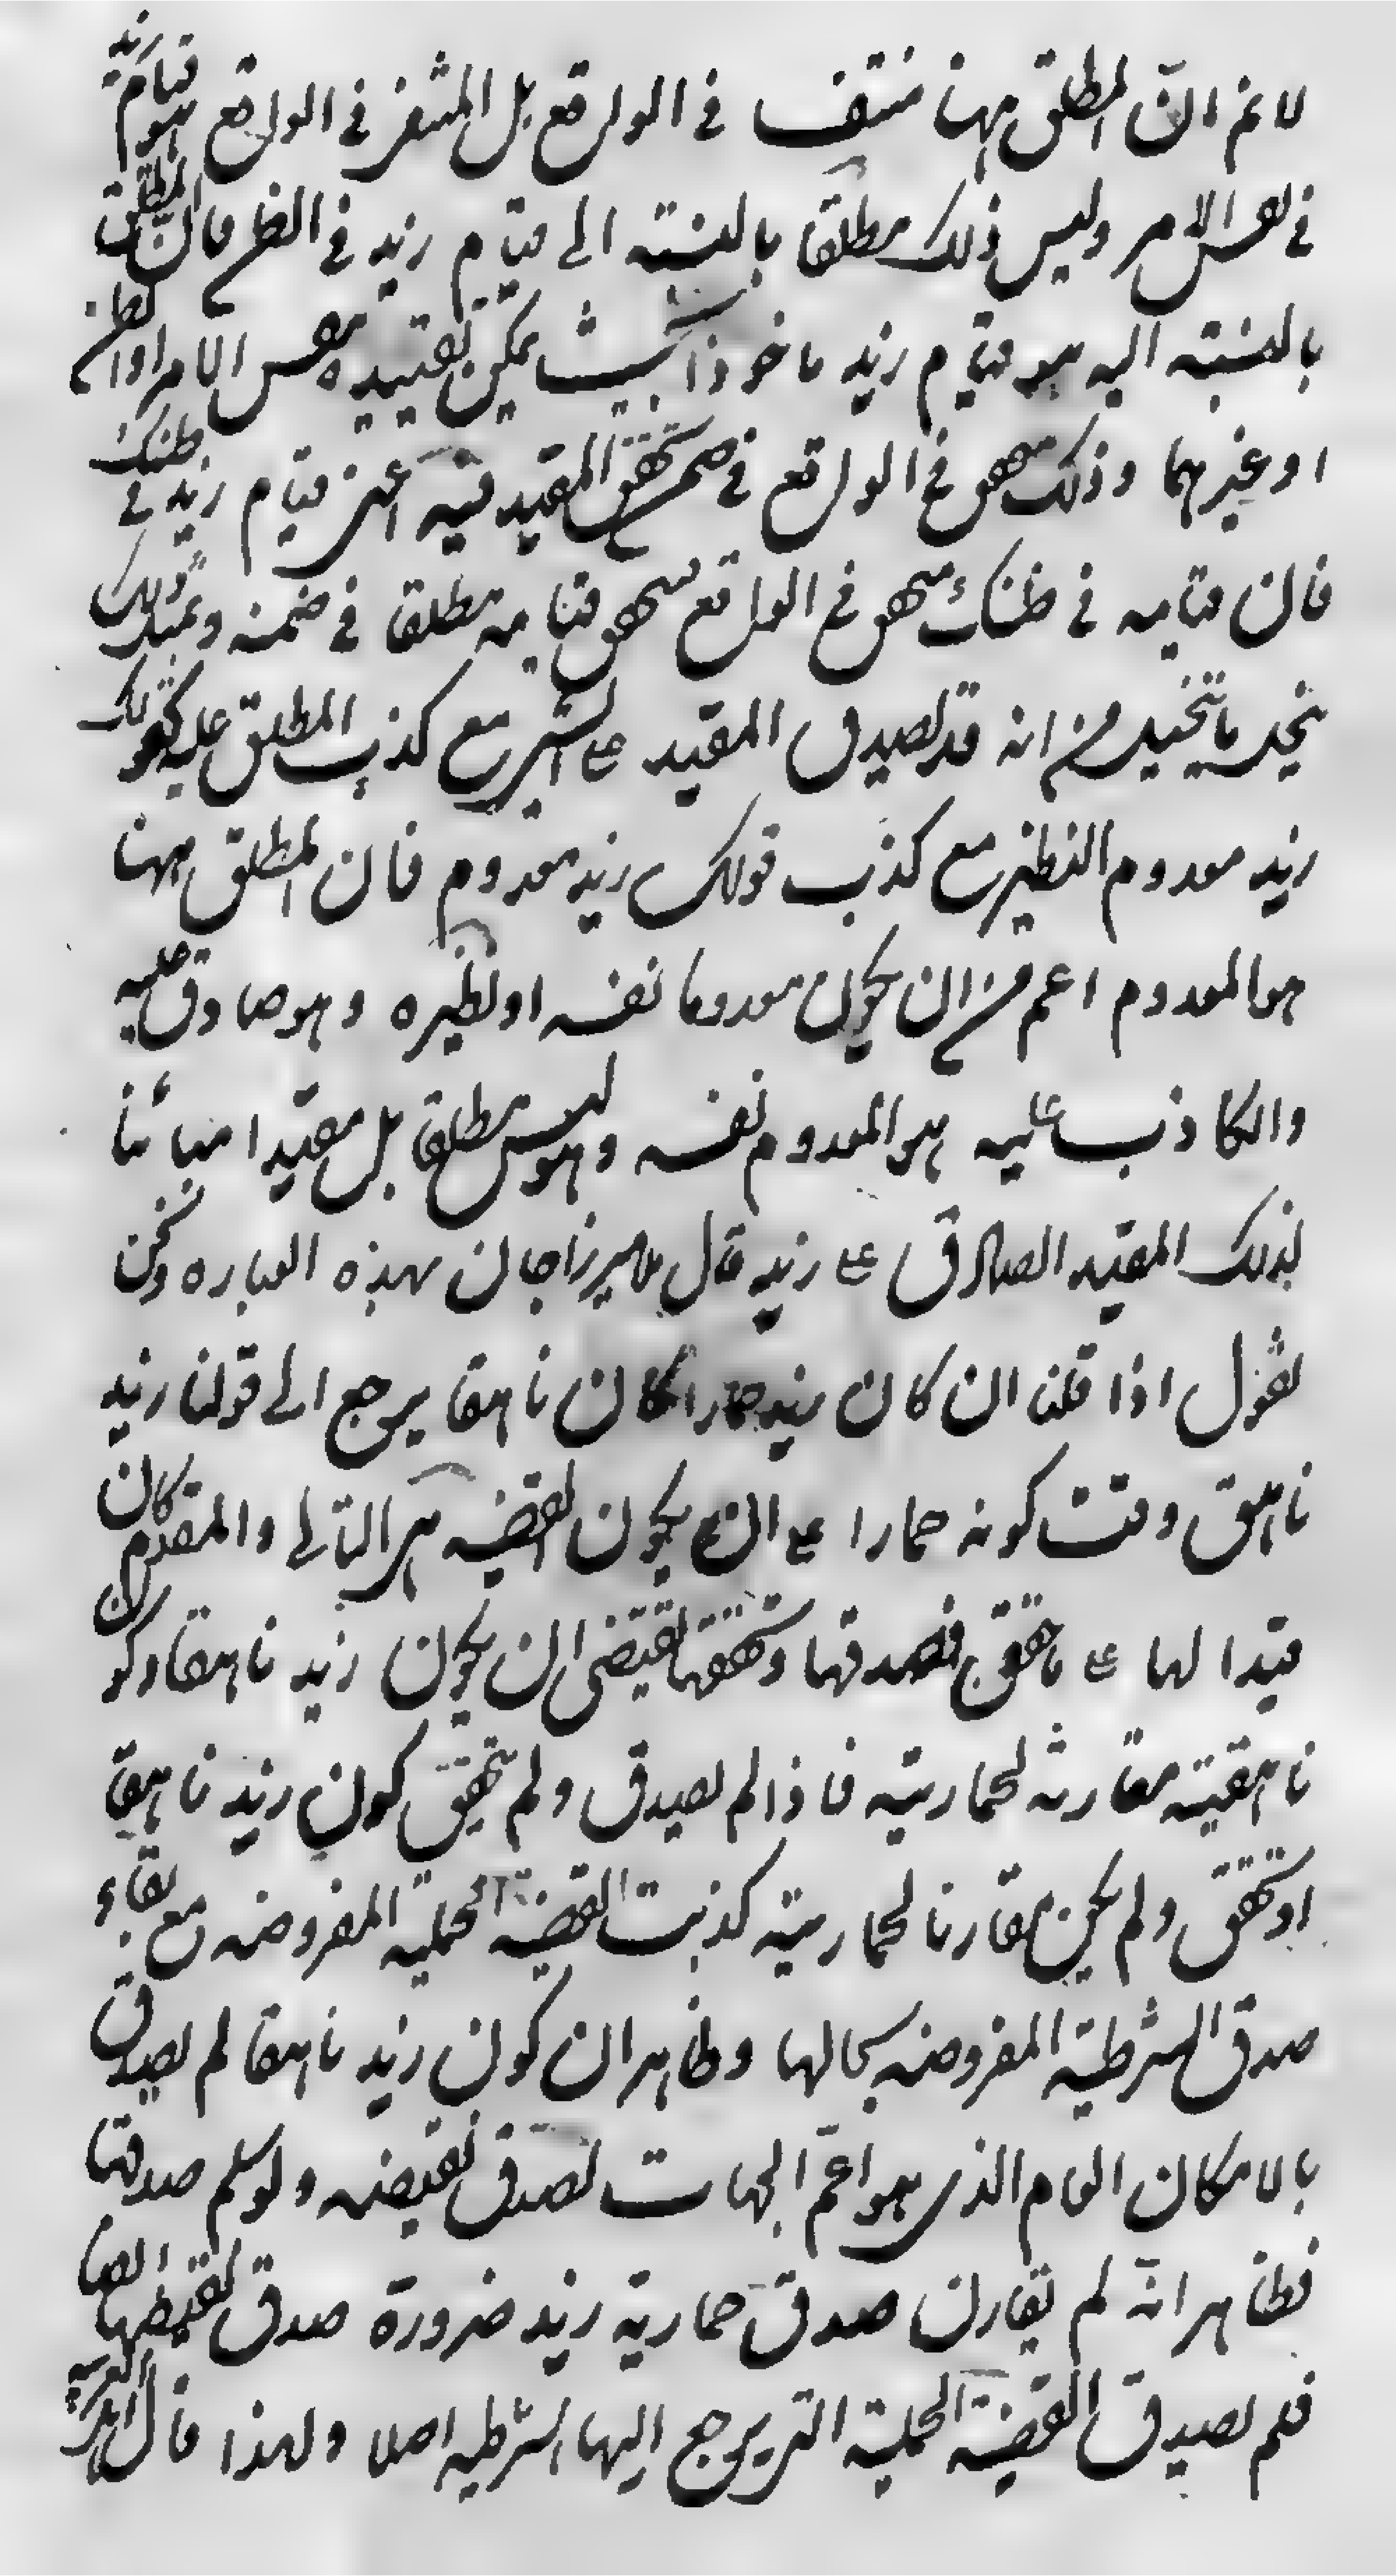 لا نم ان المطلق ههنا منتف في الواقع بل المنتفى في الواقع هو قيام زيد
في نفس الامر وليس ذلك مطلقا بالنسبة الى قيام زيد في الظن فان المطلق
بالنسبة اليه هو قيام زيد ماخوذا بحيث يمكن تقييده بنفس الامر او الظن
او غيرهما وذلك متحقق في الواقع في ضمن تحقق المقيد فيه اعنى قيام زيد في ظنك
فان قيامه في ظنك متحقق في الواقع فتحقق قيامه مطلقا في ضمنه وبمثل ذلك
ينحل ما يتخيل من انه قد يصدق المقيد على الشئ مع كذب المطلق عليه كقولك
زيد معدوم النظير مع كذب قولك زيد معدوم فان المطلق ههنا
هو المعدوم اعم من ان يكون معدوما نفسه او نظيره وهو صادق عليه
والكاذب عليه هو المعدوم نفسه وهو ليس مطلقا بل مقيدا مبائنا
لذلك المقيد الصادق على زيد قال ملا ميرزا جان بهذه العباره ونحن
نقول اذا قلنا ان كان زيد حمارا كان ناهقا يرجع الى قولنا زيد
ناهق وقت كونه حمارا على ان يكون القضيه هى التالى والمقدم كان
قيدا لها على ما حقق فصدقها وتحققها يقتضى ان يكون زيد ناهقا وكون
ناهقيته مقارنه لحماريته فاذا لم يصدق ولم يتحقق كون زيد ناهقا
او تحقق ولم يكن مقارنا لحماريته كذبت القضية الحملية المفروضه مع بقاء
صدق الشرطية المفروضه بحالها وظاهر ان كون زيد ناهقا لم يصدق
بالامكان العام الذى هو اعم الجهات لصدق نقيضه ولو سلم صدقها
فظاهر انه لم يقارن صدق حمارية زيد ضرورة صدق نقيضها ايضا
فلم يصدق القضية الحملية التى يرجع اليها الشرطيه اصلا ولهذا قال اهل العربيه